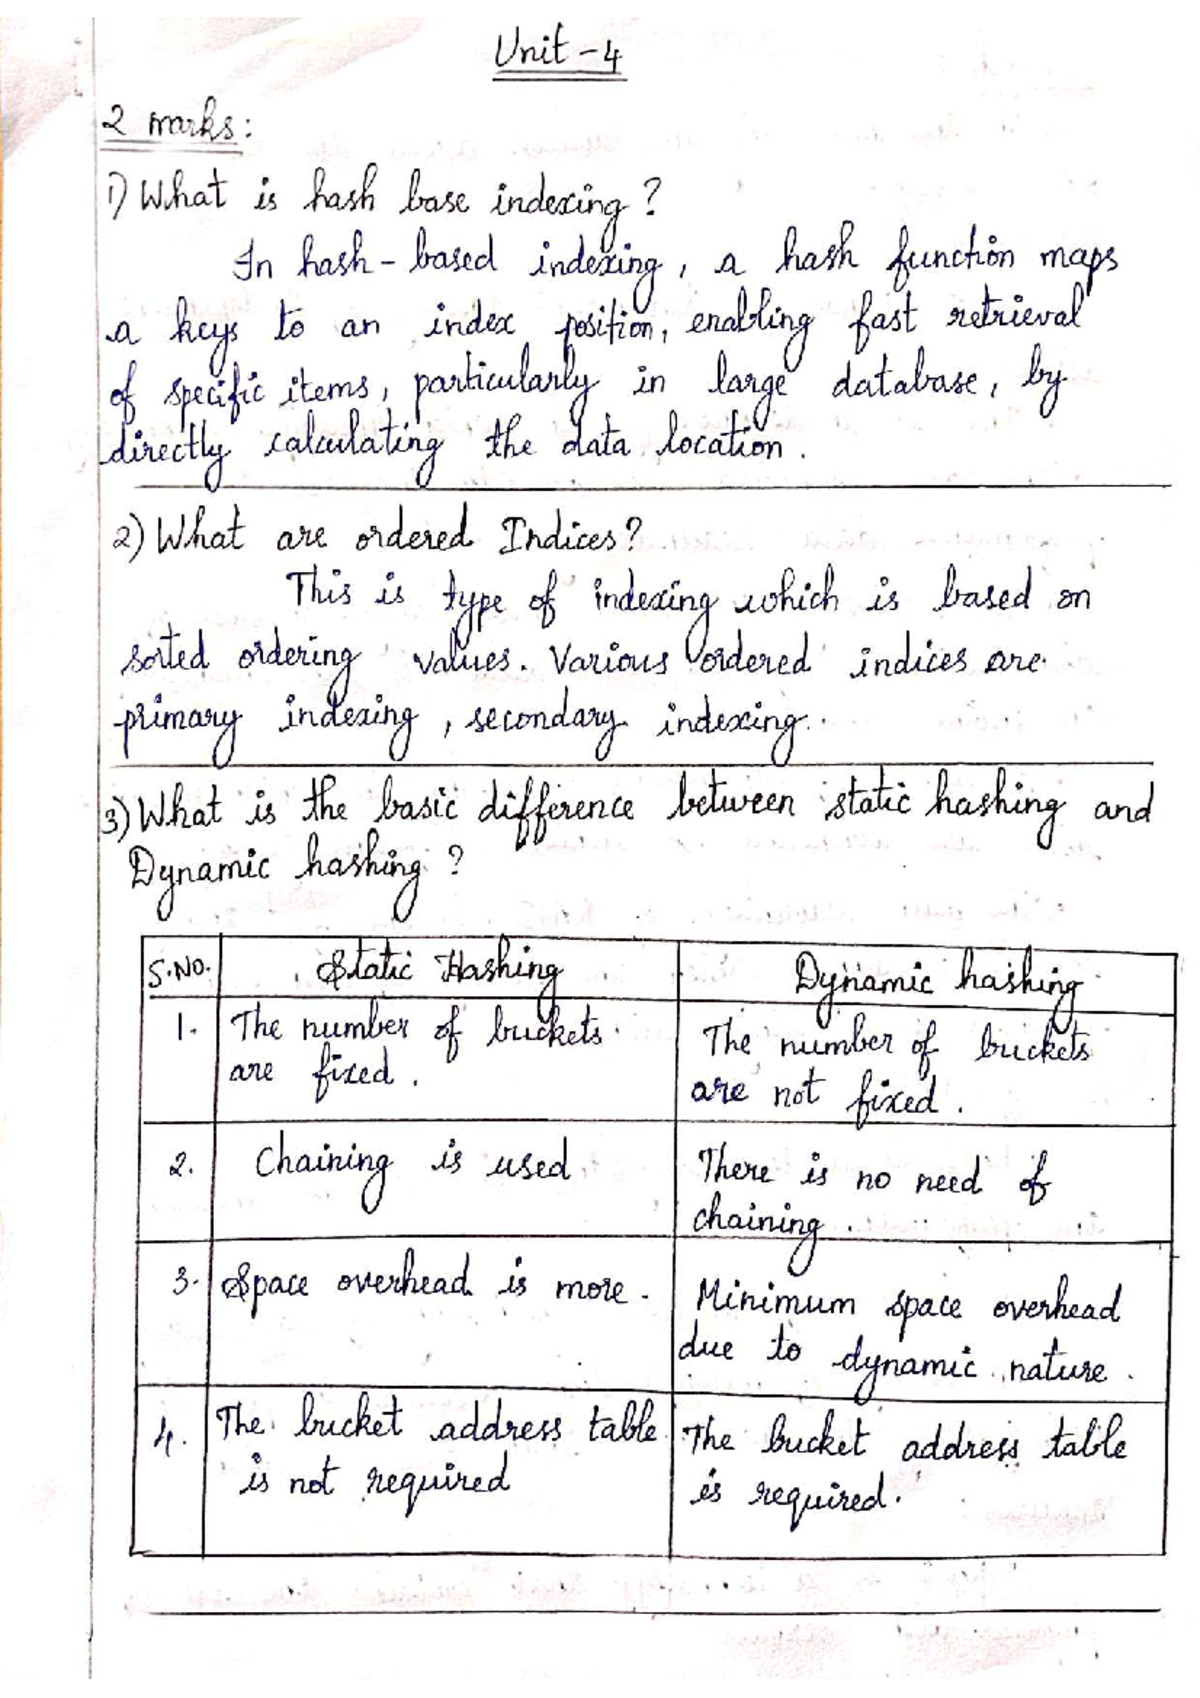 Unit - 4
2 marks:
1) What is hash base indexing?
In hash - based indexing, a hash function maps
a keys to an index position, enabling fast retrieval
of specific items, particularly in large database, by
directly calculating the data location.
2) What are ordered Indices?
This is type of indexing which is based on
sorted ordering values. Various ordered indices are
primary indexing, secondary indexing.
3) What is the basic difference between static hashing and
Dynamic hashing?
S.NO. Static Hashing Dynamic hashing
1. The number of buckets
are fixed.
The number of buckets
are not fixed.
2. Chaining is used
There is no need of
chaining.
3. Space overhead is more.
Minimum space overhead
due to dynamic nature.
4. The bucket address table
is not required
The bucket address table
is required.